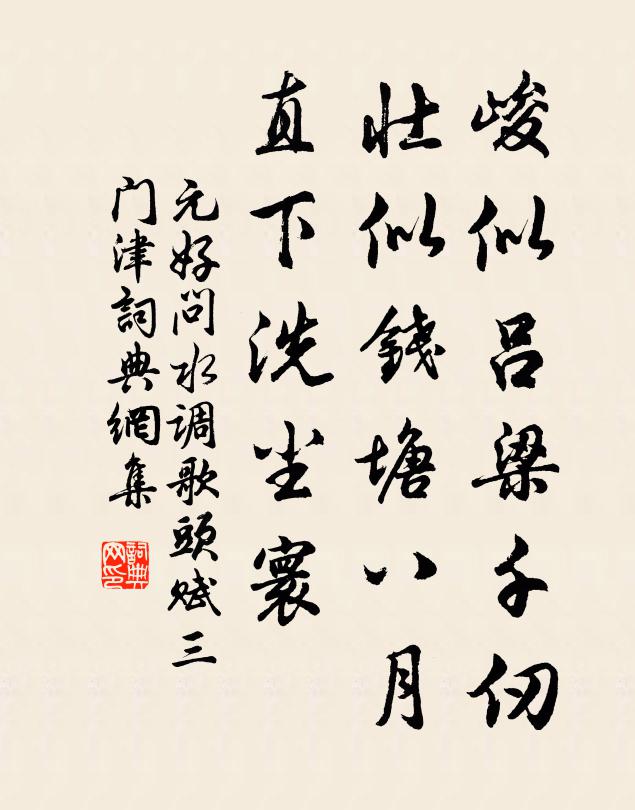 峻似吕梁千仞
壮似錢塘八月
直下洗尘寰
元好问水调歌頭赋三
门津詞典網集
詞典网印